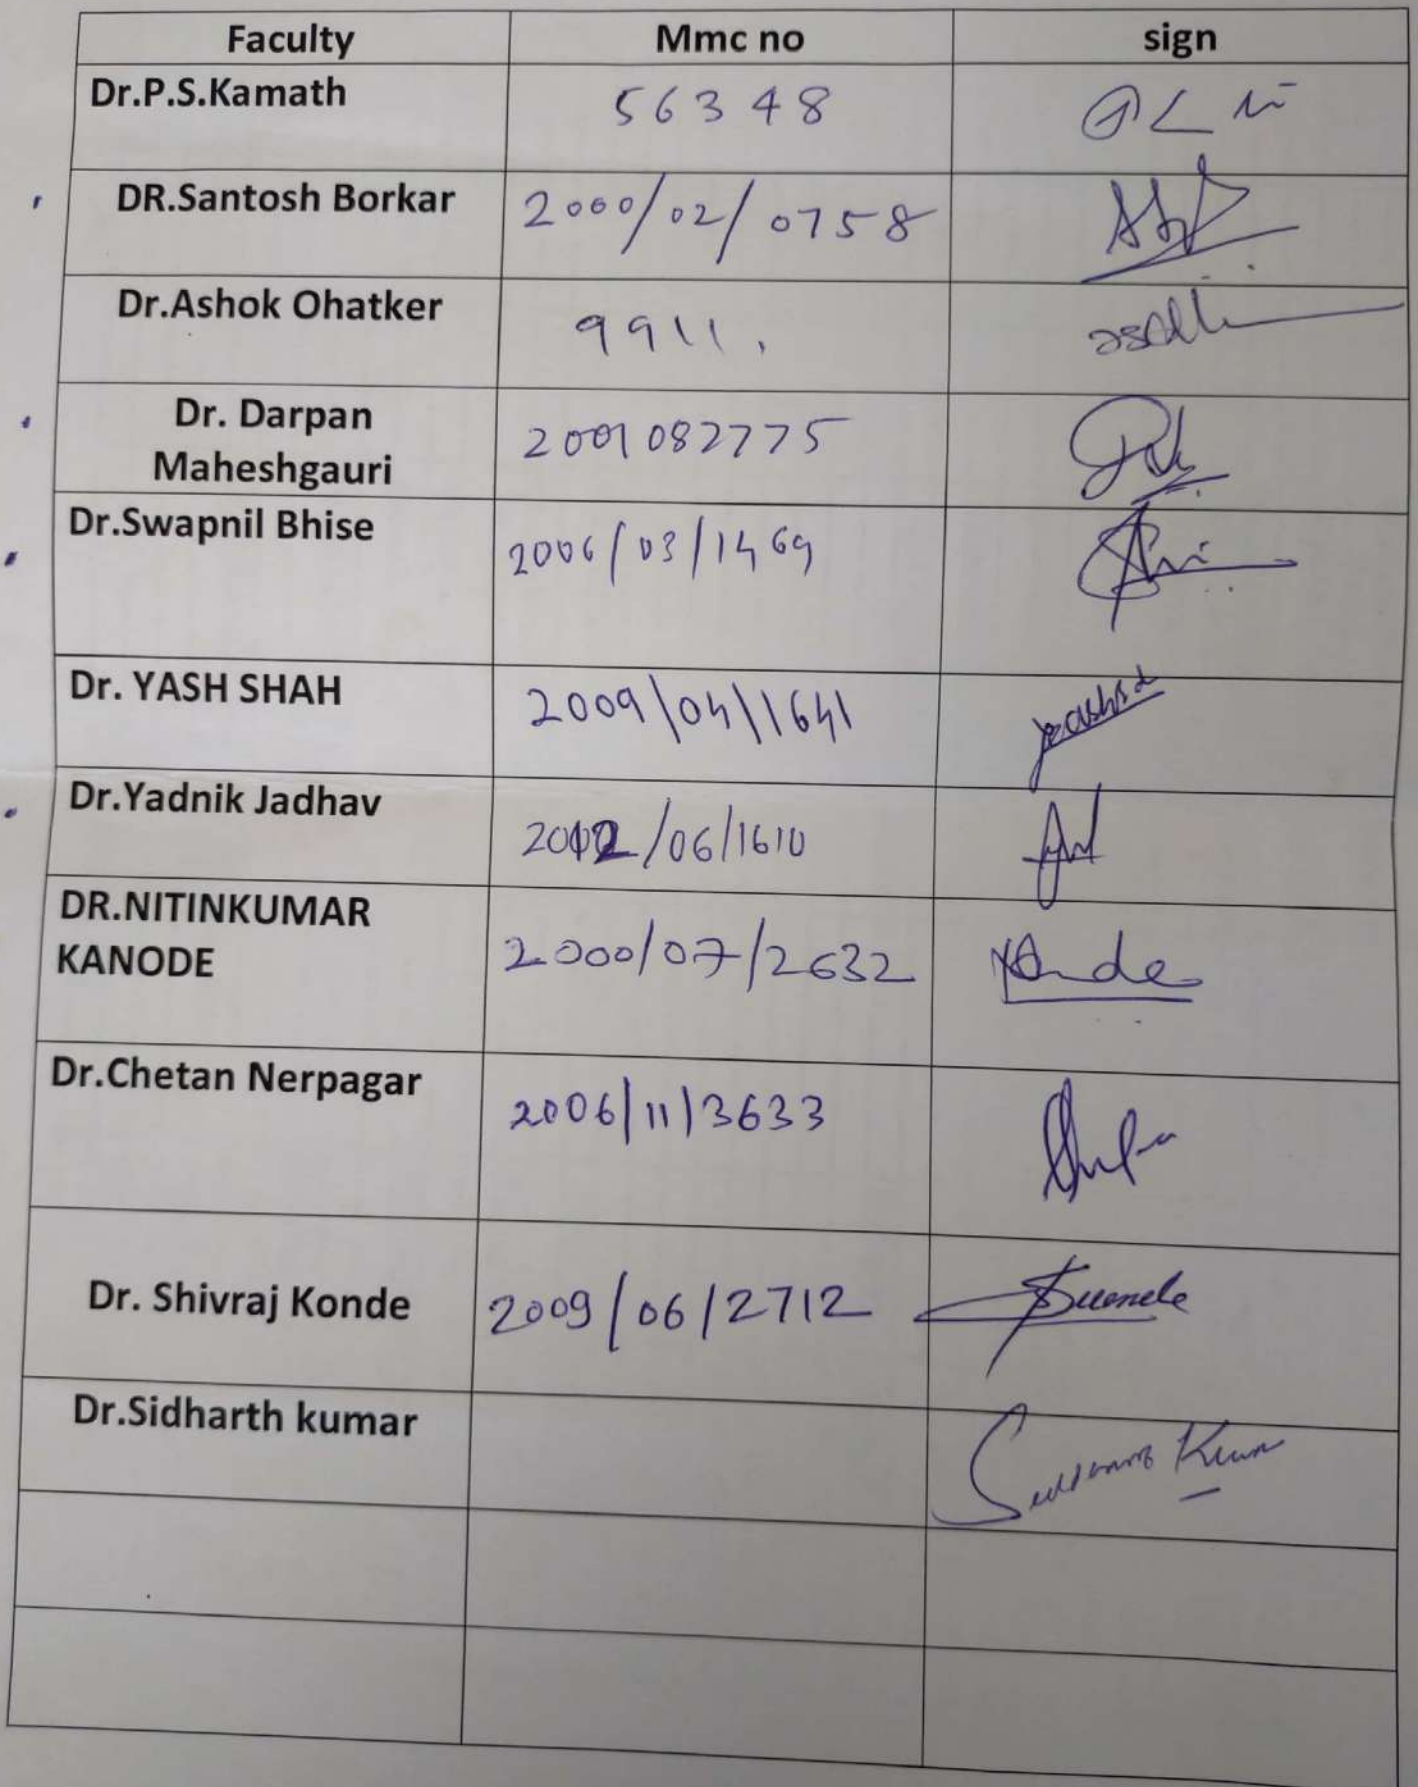 Faculty Mmc no sign
Dr.P.S.Kamath 56348
DR.Santosh Borkar 2000/02/0758
Dr.Ashok Ohatker 9911.
Dr. Darpan 2001082775
Maheshgauri
Dr.Swapnil Bhise 2006/03/1469
Dr. YASH SHAH 2009/04/1641
Dr.Yadnik Jadhav 2012/06/1610
DR.NITINKUMAR
KANODE 2000/07/2632
Dr.Chetan Nerpagar 2006/11/3633
Dr. Shivraj Konde 2009/06/2712
Dr.Sidharth kumar